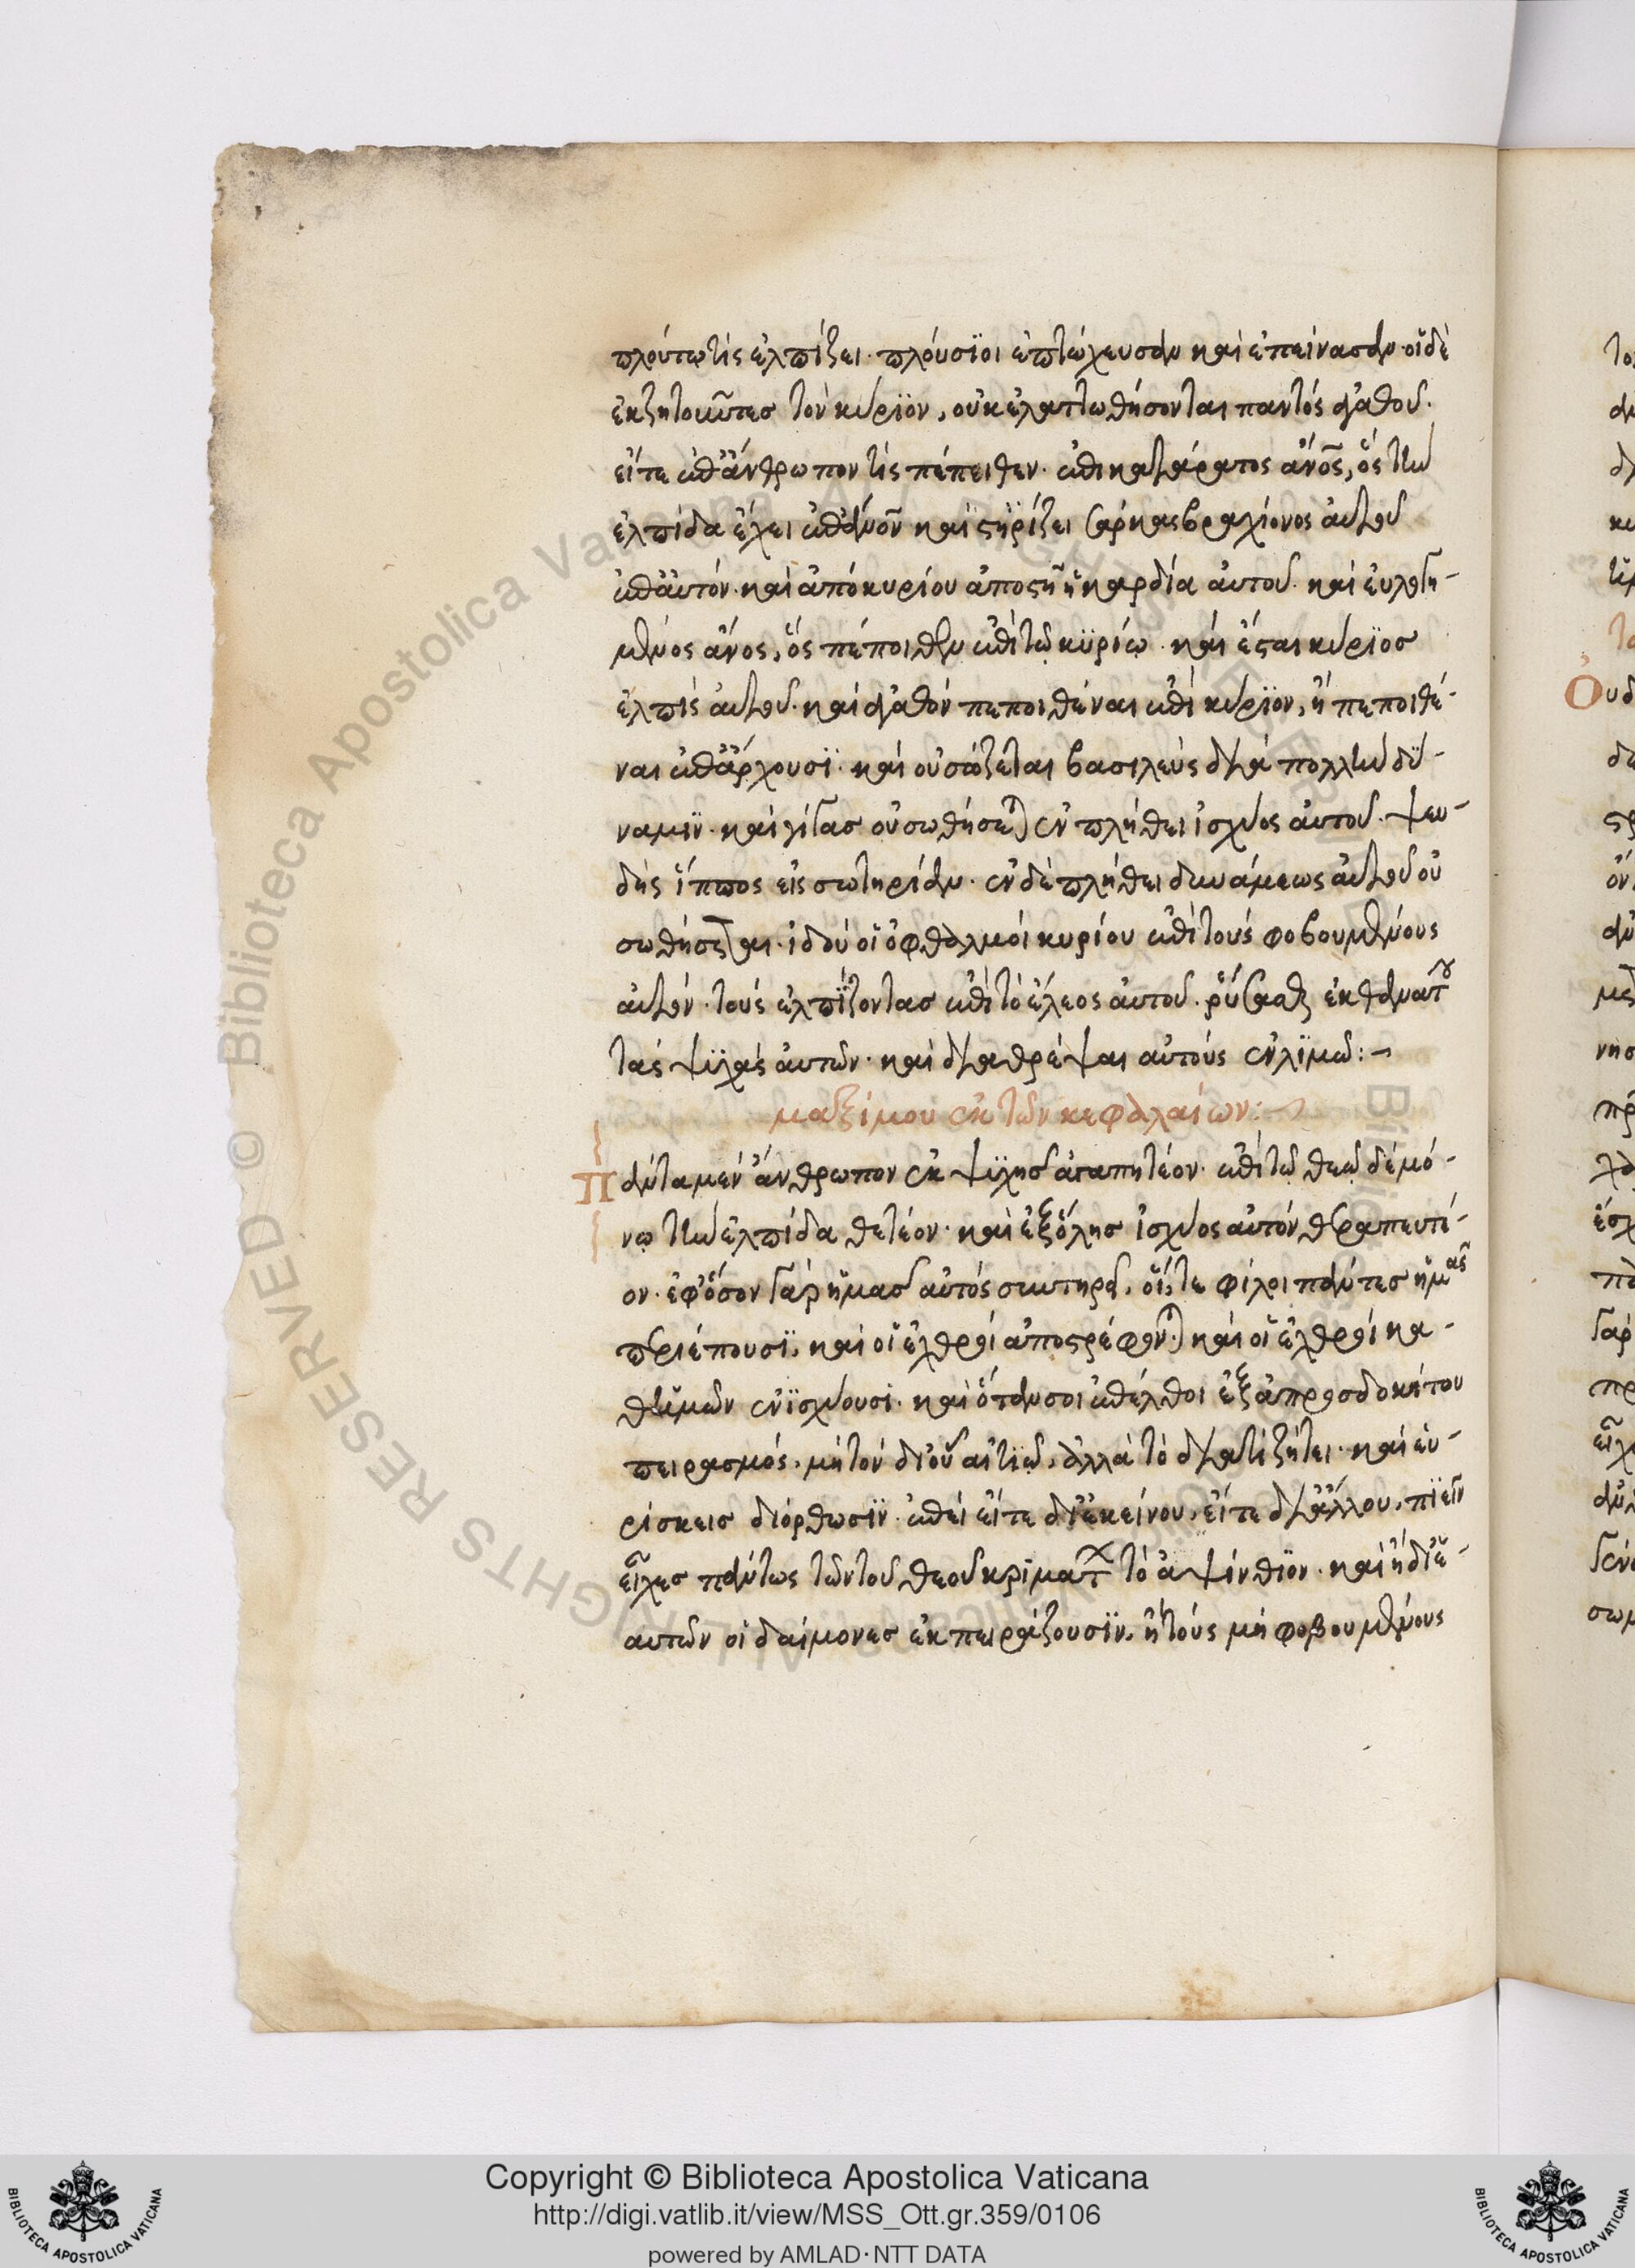 πλούτω τίς ἐλπίζει· πλούσϊοι ἐπτώχευσαν καὶ ἐπείνασαν· οἵ δὲ
ἐκζητοῦντεσ τὸν κύρϊον, οὐκ ἐλαττωθήσονται παντὸς ἀγαθοῦ.
εἴτε ἐπἄνθρωπον τίς πέποιθεν· ἐπικατάρατος ἄνος, ὅς τὴν
ἐλπίδα ἔχει ἐπ ἄνον καὶ στηρίζει σάρκας βραχίονος ἀυτοῦ
ἐπ ἀυτόν· καὶ ἀπὸ κυρίου ἀποστῆ ἡ καρδία ἀυτοῦ· καὶ ἐυλογη-
μένος ἄνος, ὅς πέποιθεν ἐπὶ τῷ κϋρίῳ· καὶ ἔσται κύρϊοσ
ἐλπὶς ἀυτοῦ· καὶ ἀγαθὸν πεποιθέναι ἐπὶ κύρϊον, ἢ πεποιθέ-
ναι ἐπ ἄρχουσϊ· καὶ οὐ σώζεται βασιλεὺς διὰ πολλὴν δϋ-
ναμϊν· καὶ γίγασ οὐ σωθήσεται ἐν πλήθει ἰσχύος ἀυτοῦ· ψευ-
δὴς ἵππος εἰς σωτηρίαν· ἐν δὲ πλήθει δυνάμεως ἀυτοῦ οὐ
σωθήσεται· ἰδοὺ οἱ ὀφθαλμοὶ κυρίου ἐπὶ τοὺς φοβουμένους
ἀυτὸν· τοὺς ἐλπίζοντασ ἐπὶ τὸ ἔλεος ἀυτοῦ· ῥύσασθαι ἐκ θανάτου
τὰς ψϋχὰς ἀυτῶν· καὶ διαθρέψαι αὐτοὺς ἐν λϊμῶ:
μαξίμου ἐκ τῶν κεφαλαίων:
Πάντα μὲν ἄνθρωπον ἐκ ψϋχῆσ ἀγαπητέον· ἐπὶ τῷ θεῷ δὲ μό-
νῳ τὴν ἐλπίδα θετέον· καὶ ἐξ ὅλησ ἰσχύος αὐτὸν θεραπευτέ-
ον· ἐφ ὅσον γὰρ ἡμᾶσ αὐτὸς συντηρεῖ, οἵ τε φίλοι πάντεσ ἡμᾶς
περιέπουσϊ, καὶ οἱ ἐχθροὶ ἀποστρέφονται καὶ οἱ ἐχθροὶ κα-
θ ἡμῶν ἐνϊσχύουσϊ· καὶ ὅταν σοι ἐπέλθοι ἐξ ἀπροσδοκήτου
πειρασμός, μὴ τὸν δι οὗ αἰτιῶ, ἀλλὰ τὸ διατί ζήτει· καὶ εὑ-
ρίσκεισ διόρθωσϊν· ἐπεὶ εἴτε δι ἐκείνου, εἴτε δι ἄλλου, πϊεῖν
εἶχεσ πάντως τῶν τοῦ θεοῦ κριμάτων τὸ ἀψίνθϊον· καὶ ἢ δι ἑ-
αυτῶν οἱ δαίμονεσ ἐκπειράζουσϊν, ἢ τοὺς μὴ φοβουμένους
Copyright © Biblioteca Apostolica Vaticana
http://digi.vatlib.it/view/MSS_Ott.gr.359/0106
powered by AMLAD·NTT DATA